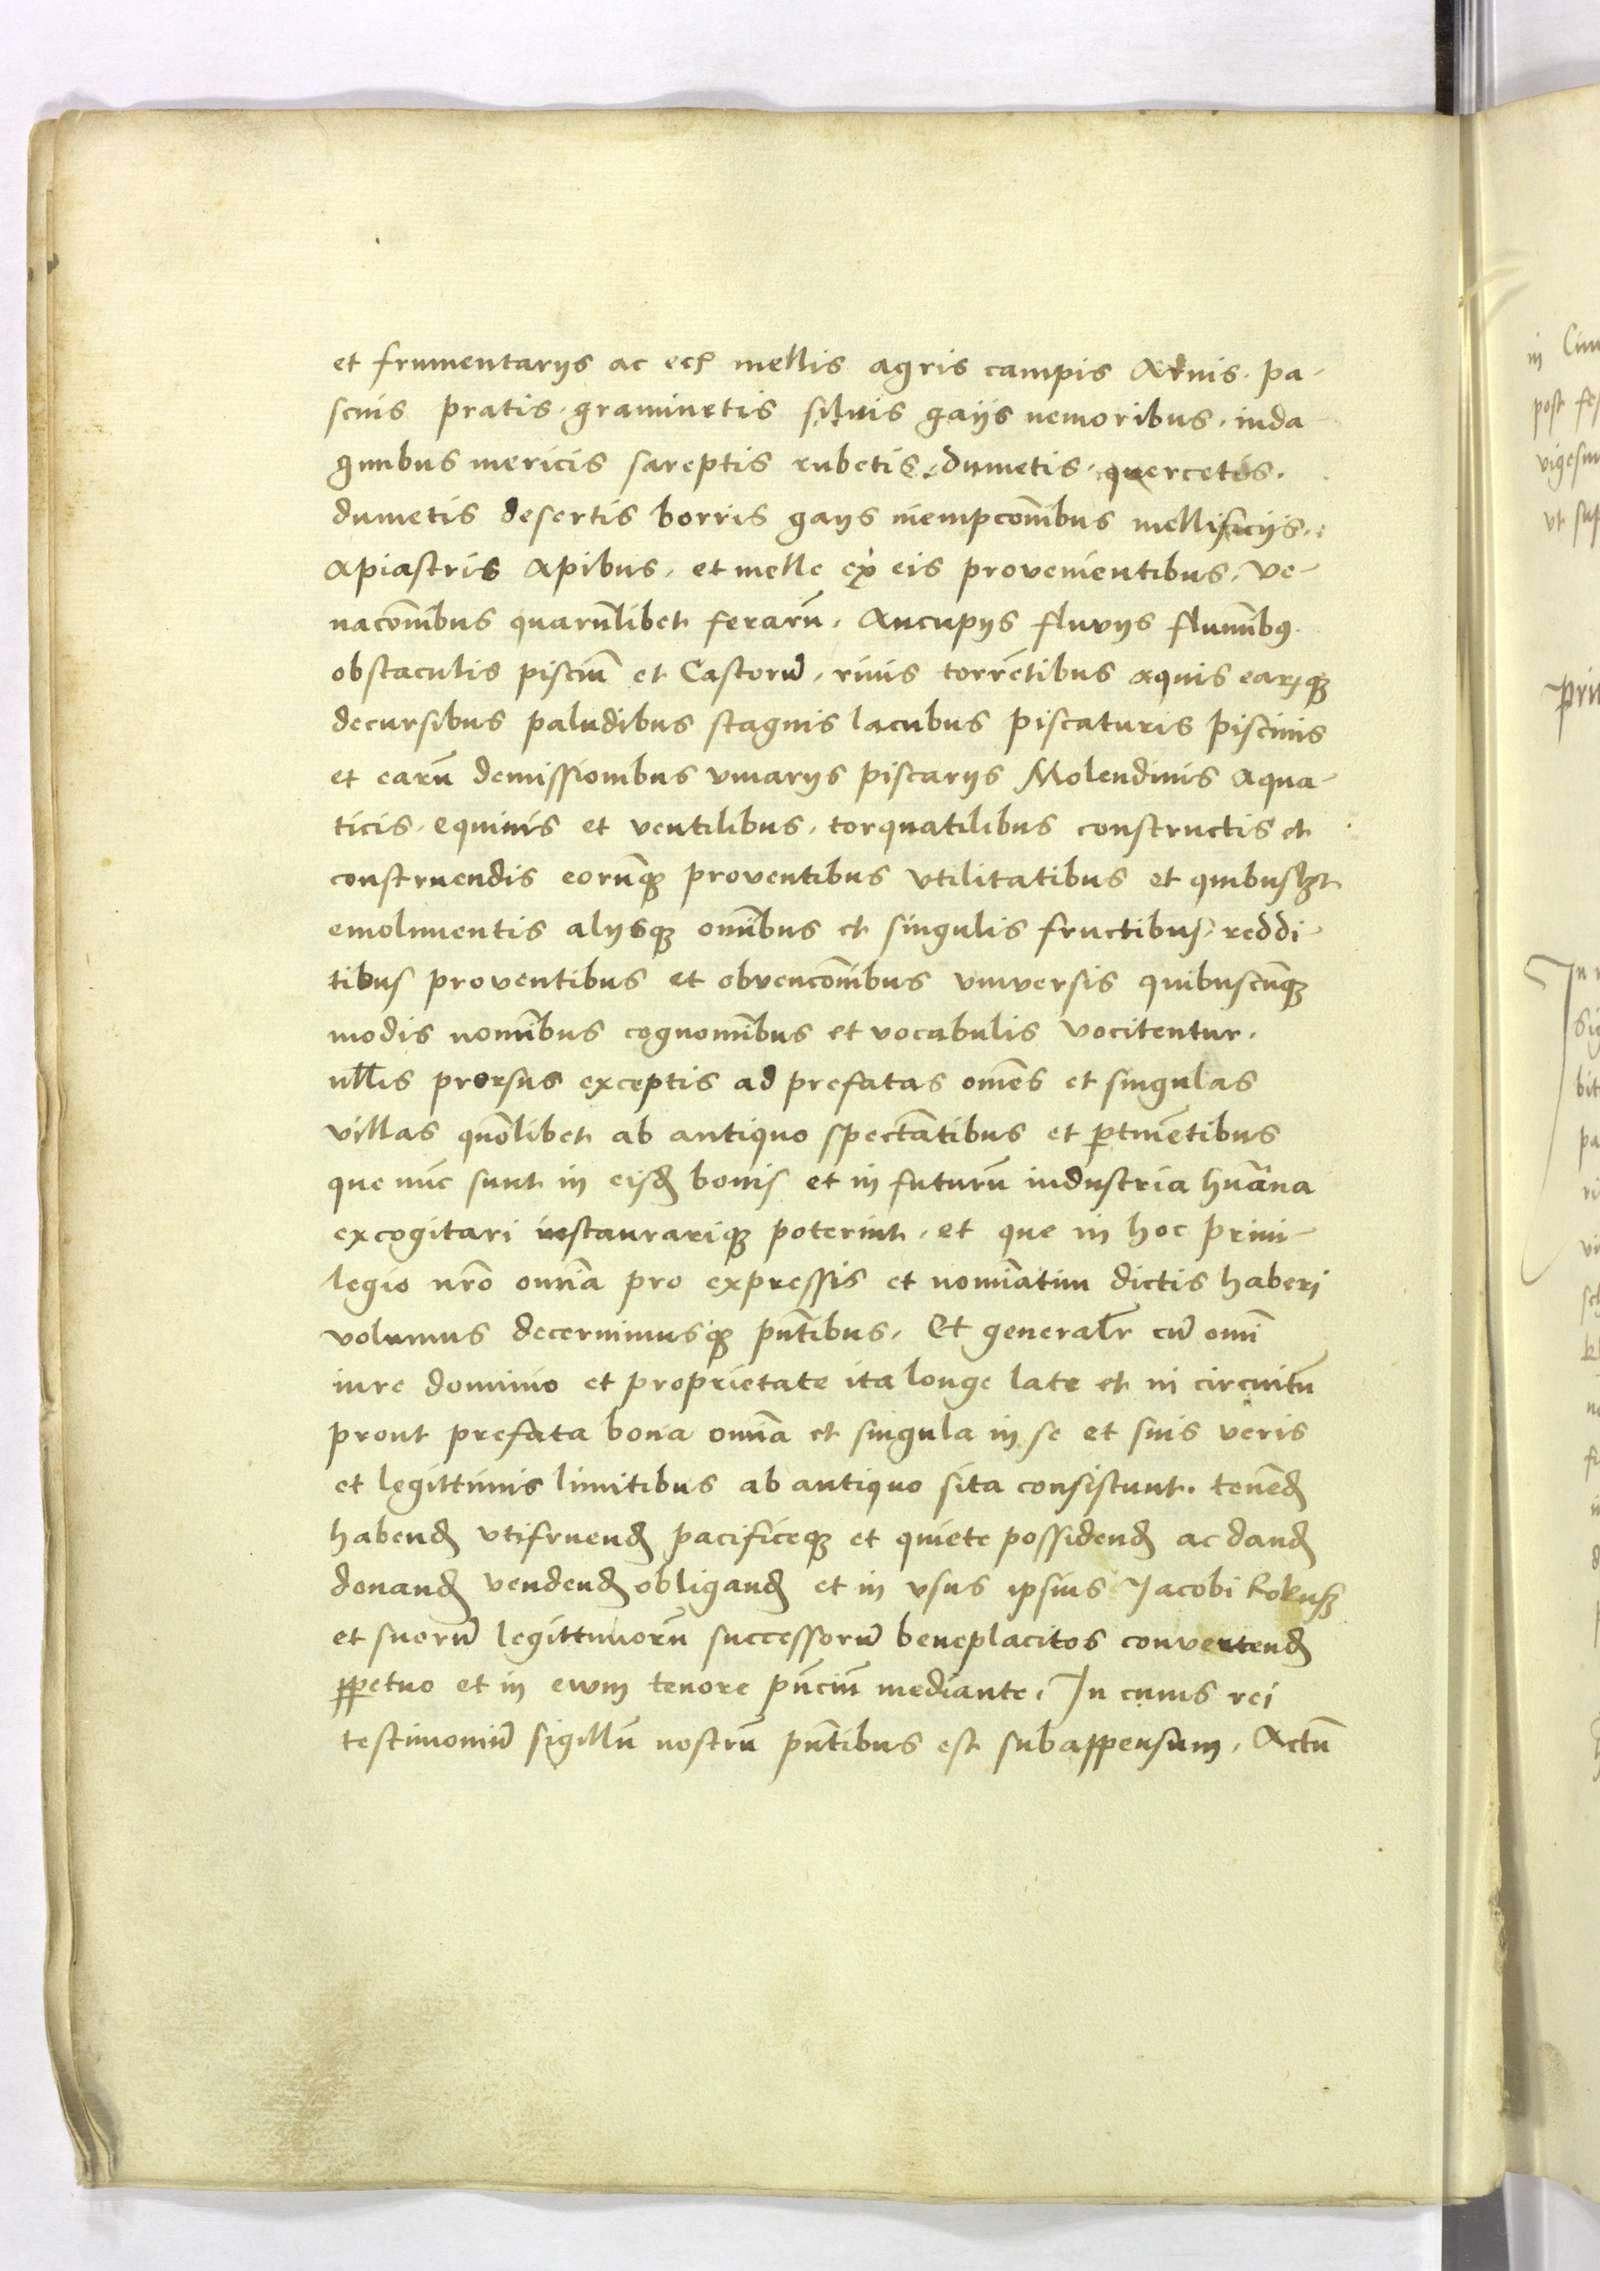 et frumentarijs ac ecł mellis agris campis Aruis. pa-
scuis pratis. graminetis siluis gaijs nemoribus. inda-
ginibus mericis sareptis rubetis. dumetis. quercetis.
dumetis desertis borris gays mempcoñibus mellificijs.
Apiastris Apibus. et melle ex eis provenientibus. ve-
nacoñibus quarūlibet ferarū. Aucupijs fluvijs flumībꝰ
obstaculis pisciū et Castorū. riuis torrētibus aquis earꝫqꝫ
decursibus paludibus stagnis lacubus piscaturis piscinis
et earū demissionibus vivarijs piscarijs Molendinis Aqua-
ticis. equinis et ventilibus. torquatilibus constructis et
construendis eorūqꝫ proventibus vtilitatibus et quibuslꝫt
emolumentis alijsqꝫ omībus et singulis fructibus. reddi-
tibus proventibus et obvencoñibus vniversis quibuscūqꝫ
modis nomībus cognomībus et vocabulis vocitentur.
ull̄is prorsus exceptis ad prefatas om̄es et singulas
villas quōlibet ab antiquo spectātibus et ꝑtinētibus
que nūc sunt in eisđ bonis et in futurū industria hūana
excogitari instaurariqꝫ poterint. et que in hoc priui-
legio nr̄o omīa pro expressis et nomīatim dictis haberi
volumus decernimusqꝫ pn̄tibus. Et generalr̄ cū omī
iure dominio et proprietate ita longe late et in circuitū
prout prefata bona omīa et singula in se et suis veris
et legittimis limitibus ab antiquo sita consistunt. tenēđ
habenđ vtifruenđ pacificeqꝫ et quiete possidenđ ac danđ
donanđ vendenđ obliganđ et in vsus ipsius Jacobi Rokuß
et suorū legittimorū successorū beneplacitos convertenđ
ꝑpetuo et in ewm tenore pn̄ciū mediante. In cuius rei
testimoniū sigillū nostrū pn̄tibus est subappensum. Actū